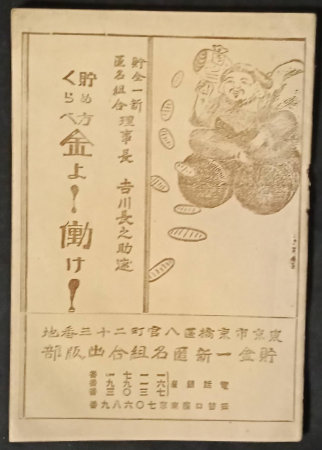 貯金一新
匿名組合
理事長 吉川長之助選
貯め方
くらべ
金よ！働け！
東京市京橋區八官町二十三番地
貯金一新匿名組合出版部
電話銀座
振替口座東京七〇六八九番